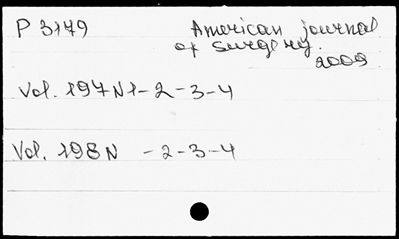 P 3149 American journal
of Surgery.
2009
Vol. 197 N 1-2-3-4
Vol. 198 N -2-3-4